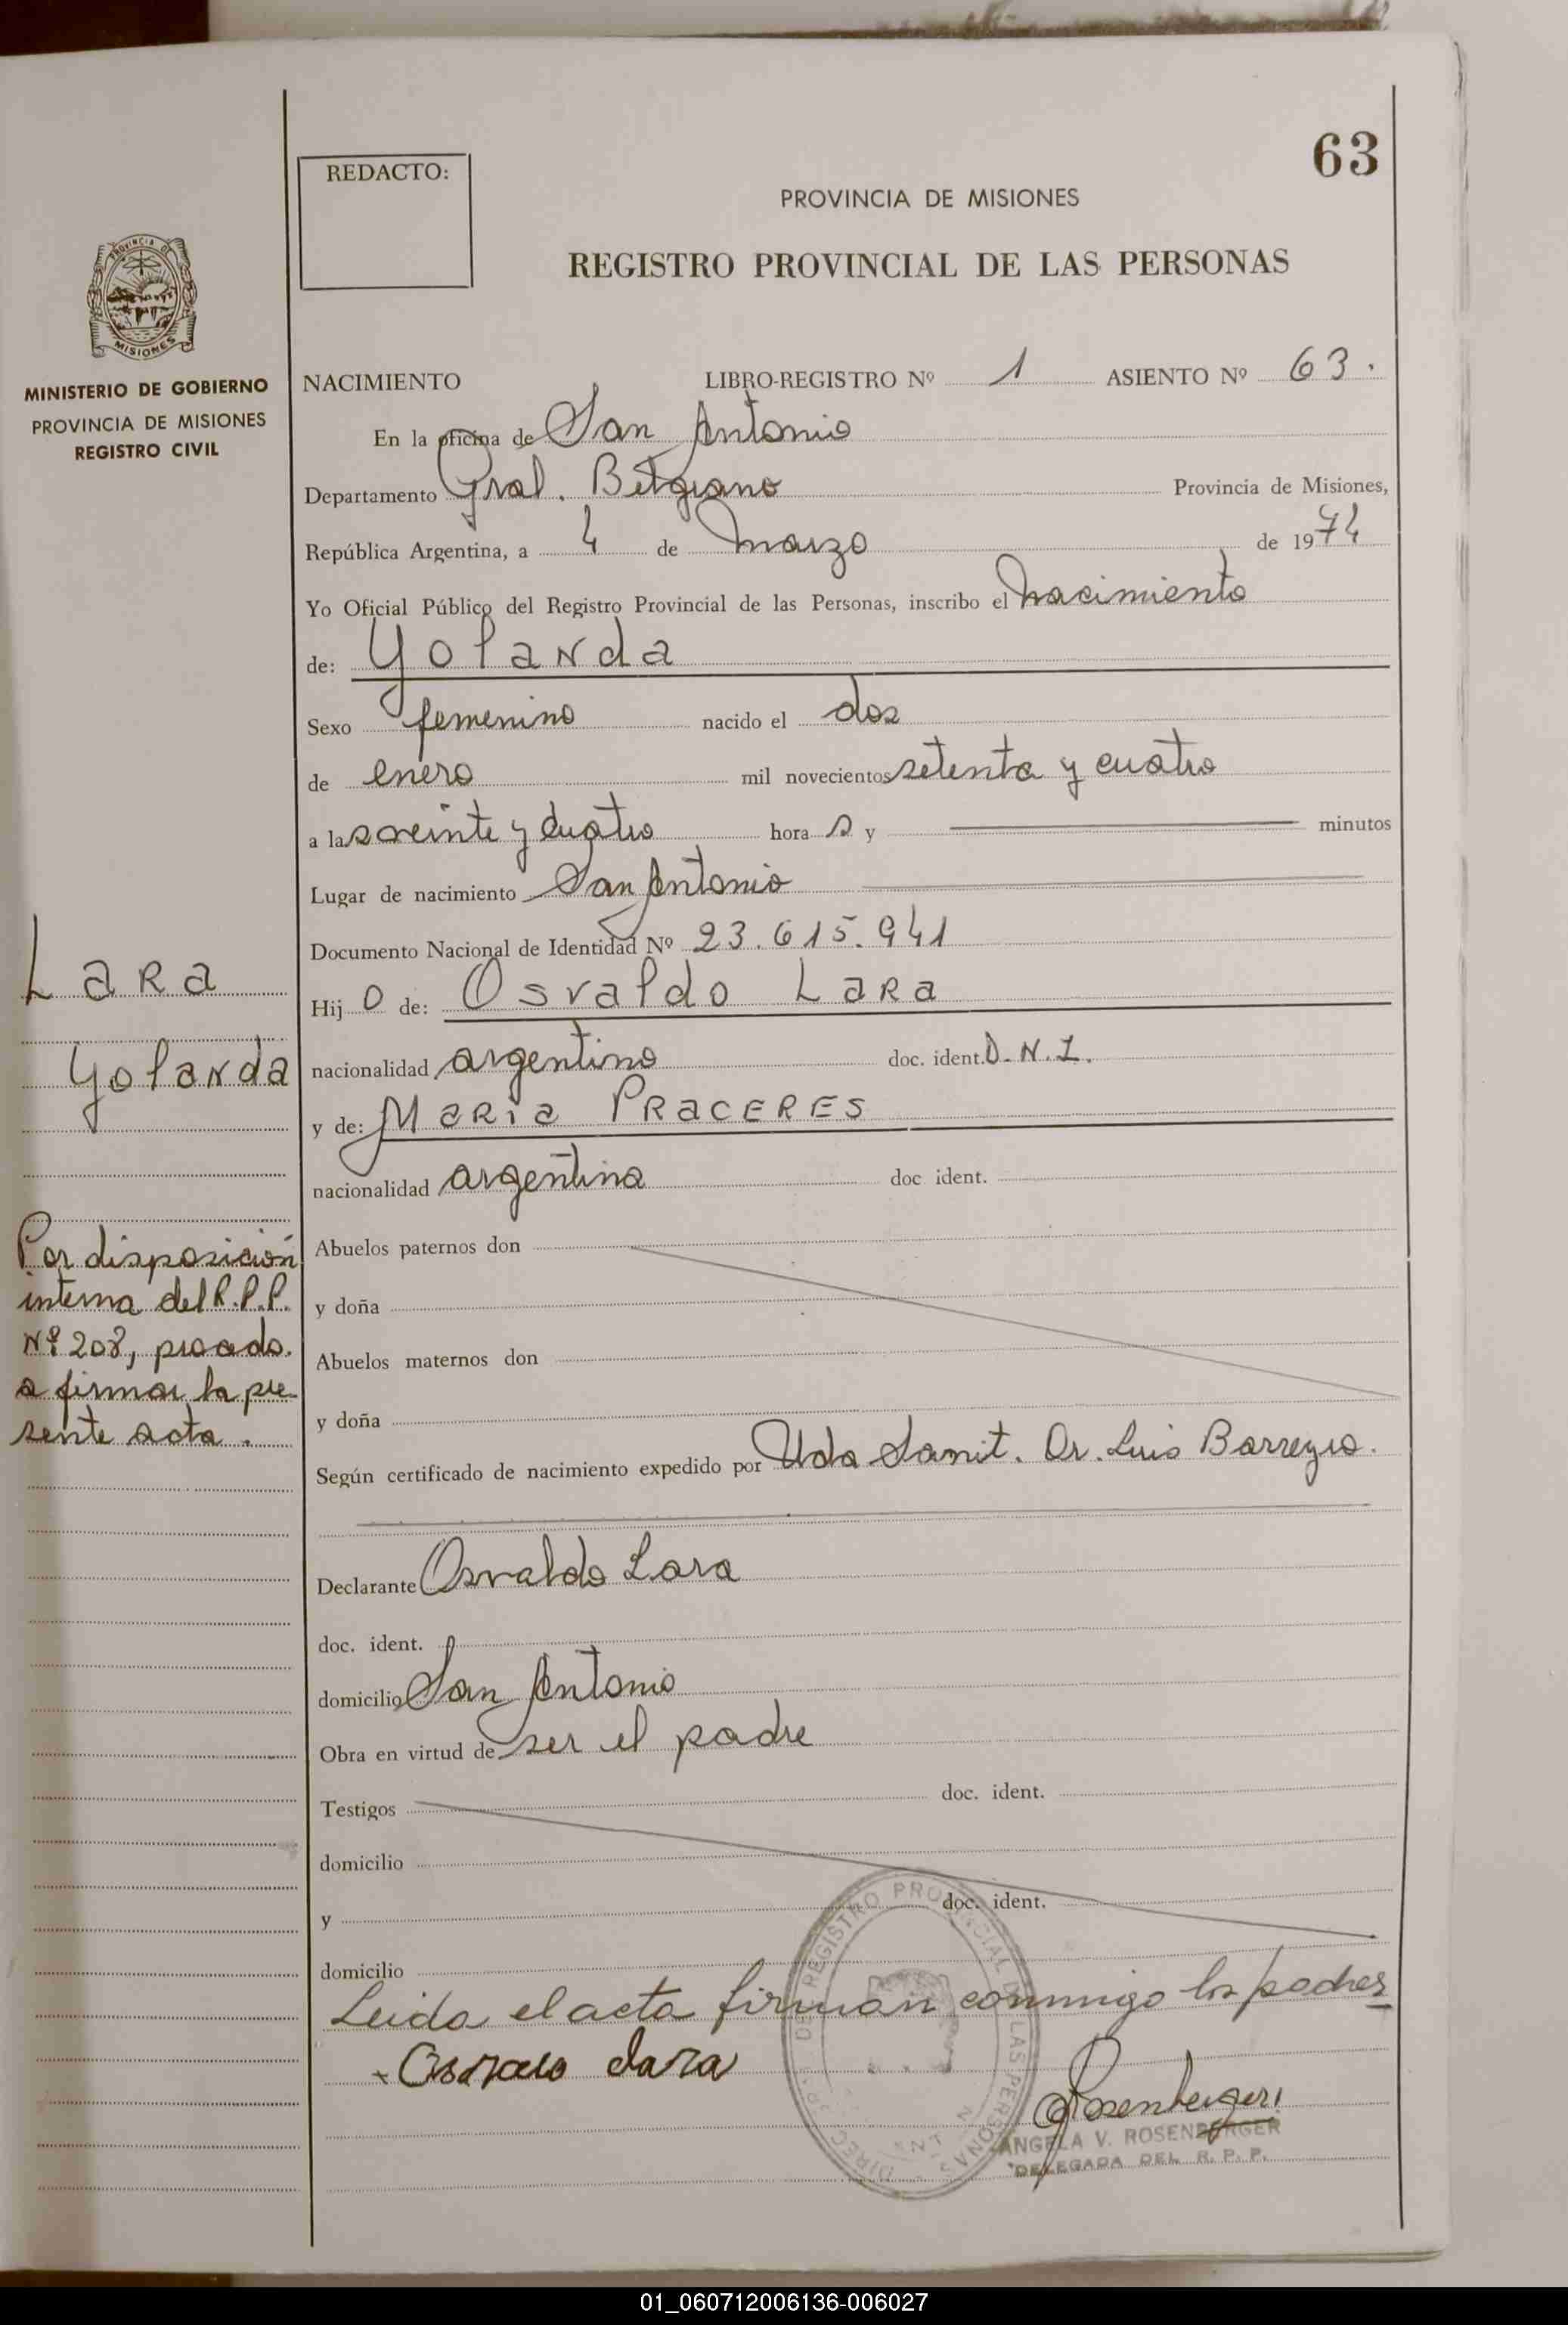 63
REDACTO:
PROVINCIA DE MISIONES
REGISTRO PROVINCIAL DE LAS PERSONAS
PROVINCIA DE
MISIONES
MINISTERIO DE GOBIERNO
PROVINCIA DE MISIONES
REGISTRO CIVIL
NACIMIENTO LIBRO-REGISTRO Nº 1 ASIENTO Nº 63.
En la oficina de San Antonio
Departamento Gral. Belgrano Provincia de Misiones,
República Argentina, a 4 de marzo de 1974
Yo Oficial Público del Registro Provincial de las Personas, inscribo el nacimiento
de: Yolanda
Sexo femenino nacido el dos
de enero mil novecientos setenta y cuatro
a las veinte y cuatro hora s y minutos
Lugar de nacimiento San Antonio
Documento Nacional de Identidad Nº 23.615.941
Lara
Yolanda
Hij o de: Osvaldo Lara
nacionalidad argentino doc. ident. D.N.I.
y de: Maria PRACERES
nacionalidad argentina doc ident.
Por disposición
interna del R.P.P.
Nº 208, procedo
a firmar la pre
sente acta.
Abuelos paternos don
y doña
Abuelos maternos don
y doña
Según certificado de nacimiento expedido por Uda Sanit. Dr. Luis Barreyro.
Declarante Osvaldo Lara
doc. ident.
domicilio San Antonio
Obra en virtud de ser el padre
Testigos doc. ident.
domicilio
y doc. ident.
domicilio
Leida el acta firman conmigo los padres
Lara
Rosenberger
ANGELA V. ROSENBERGER
DELEGADA DEL R. P. P.
REGISTRO PROVINCIAL DE LAS PERSONAS
01_060712006136-006027